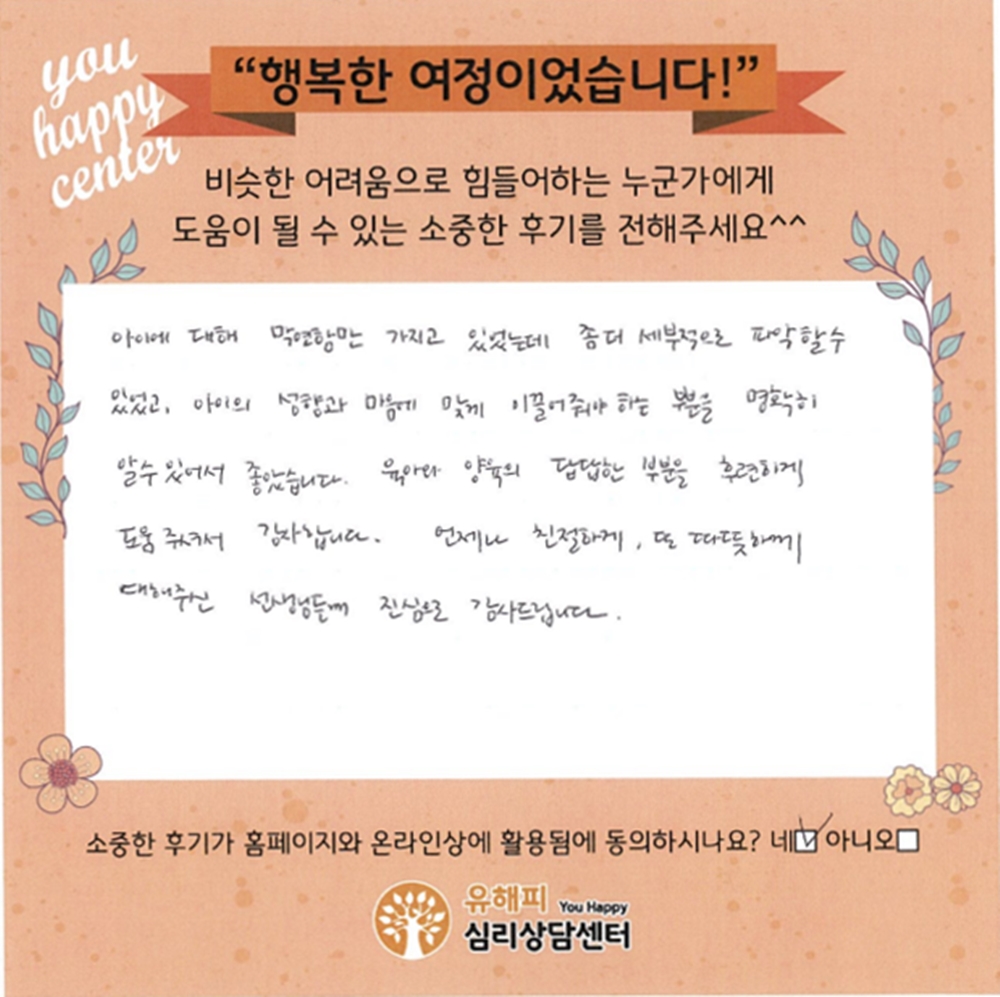 you
happy
center
“행복한 여정이었습니다!”
비슷한 어려움으로 힘들어하는 누군가에게
도움이 될 수 있는 소중한 후기를 전해주세요^^
아이에 대해 막연함만 가지고 있었는데 좀 더 세부적으로 파악할 수
있었고, 아이의 성향과 마음에 맞게 이끌어줘야 하는 부분을 명확히
알 수 있어서 좋았습니다. 육아와 양육의 답답한 부분을 후련하게
도움 주셔서 감사합니다. 언제나 친절하게, 또 따뜻하게
대해주신 선생님들께 진심으로 감사드립니다.
소중한 후기가 홈페이지와 온라인상에 활용됨에 동의하시나요? 네☑ 아니오☐
유해피 You Happy
심리상담센터